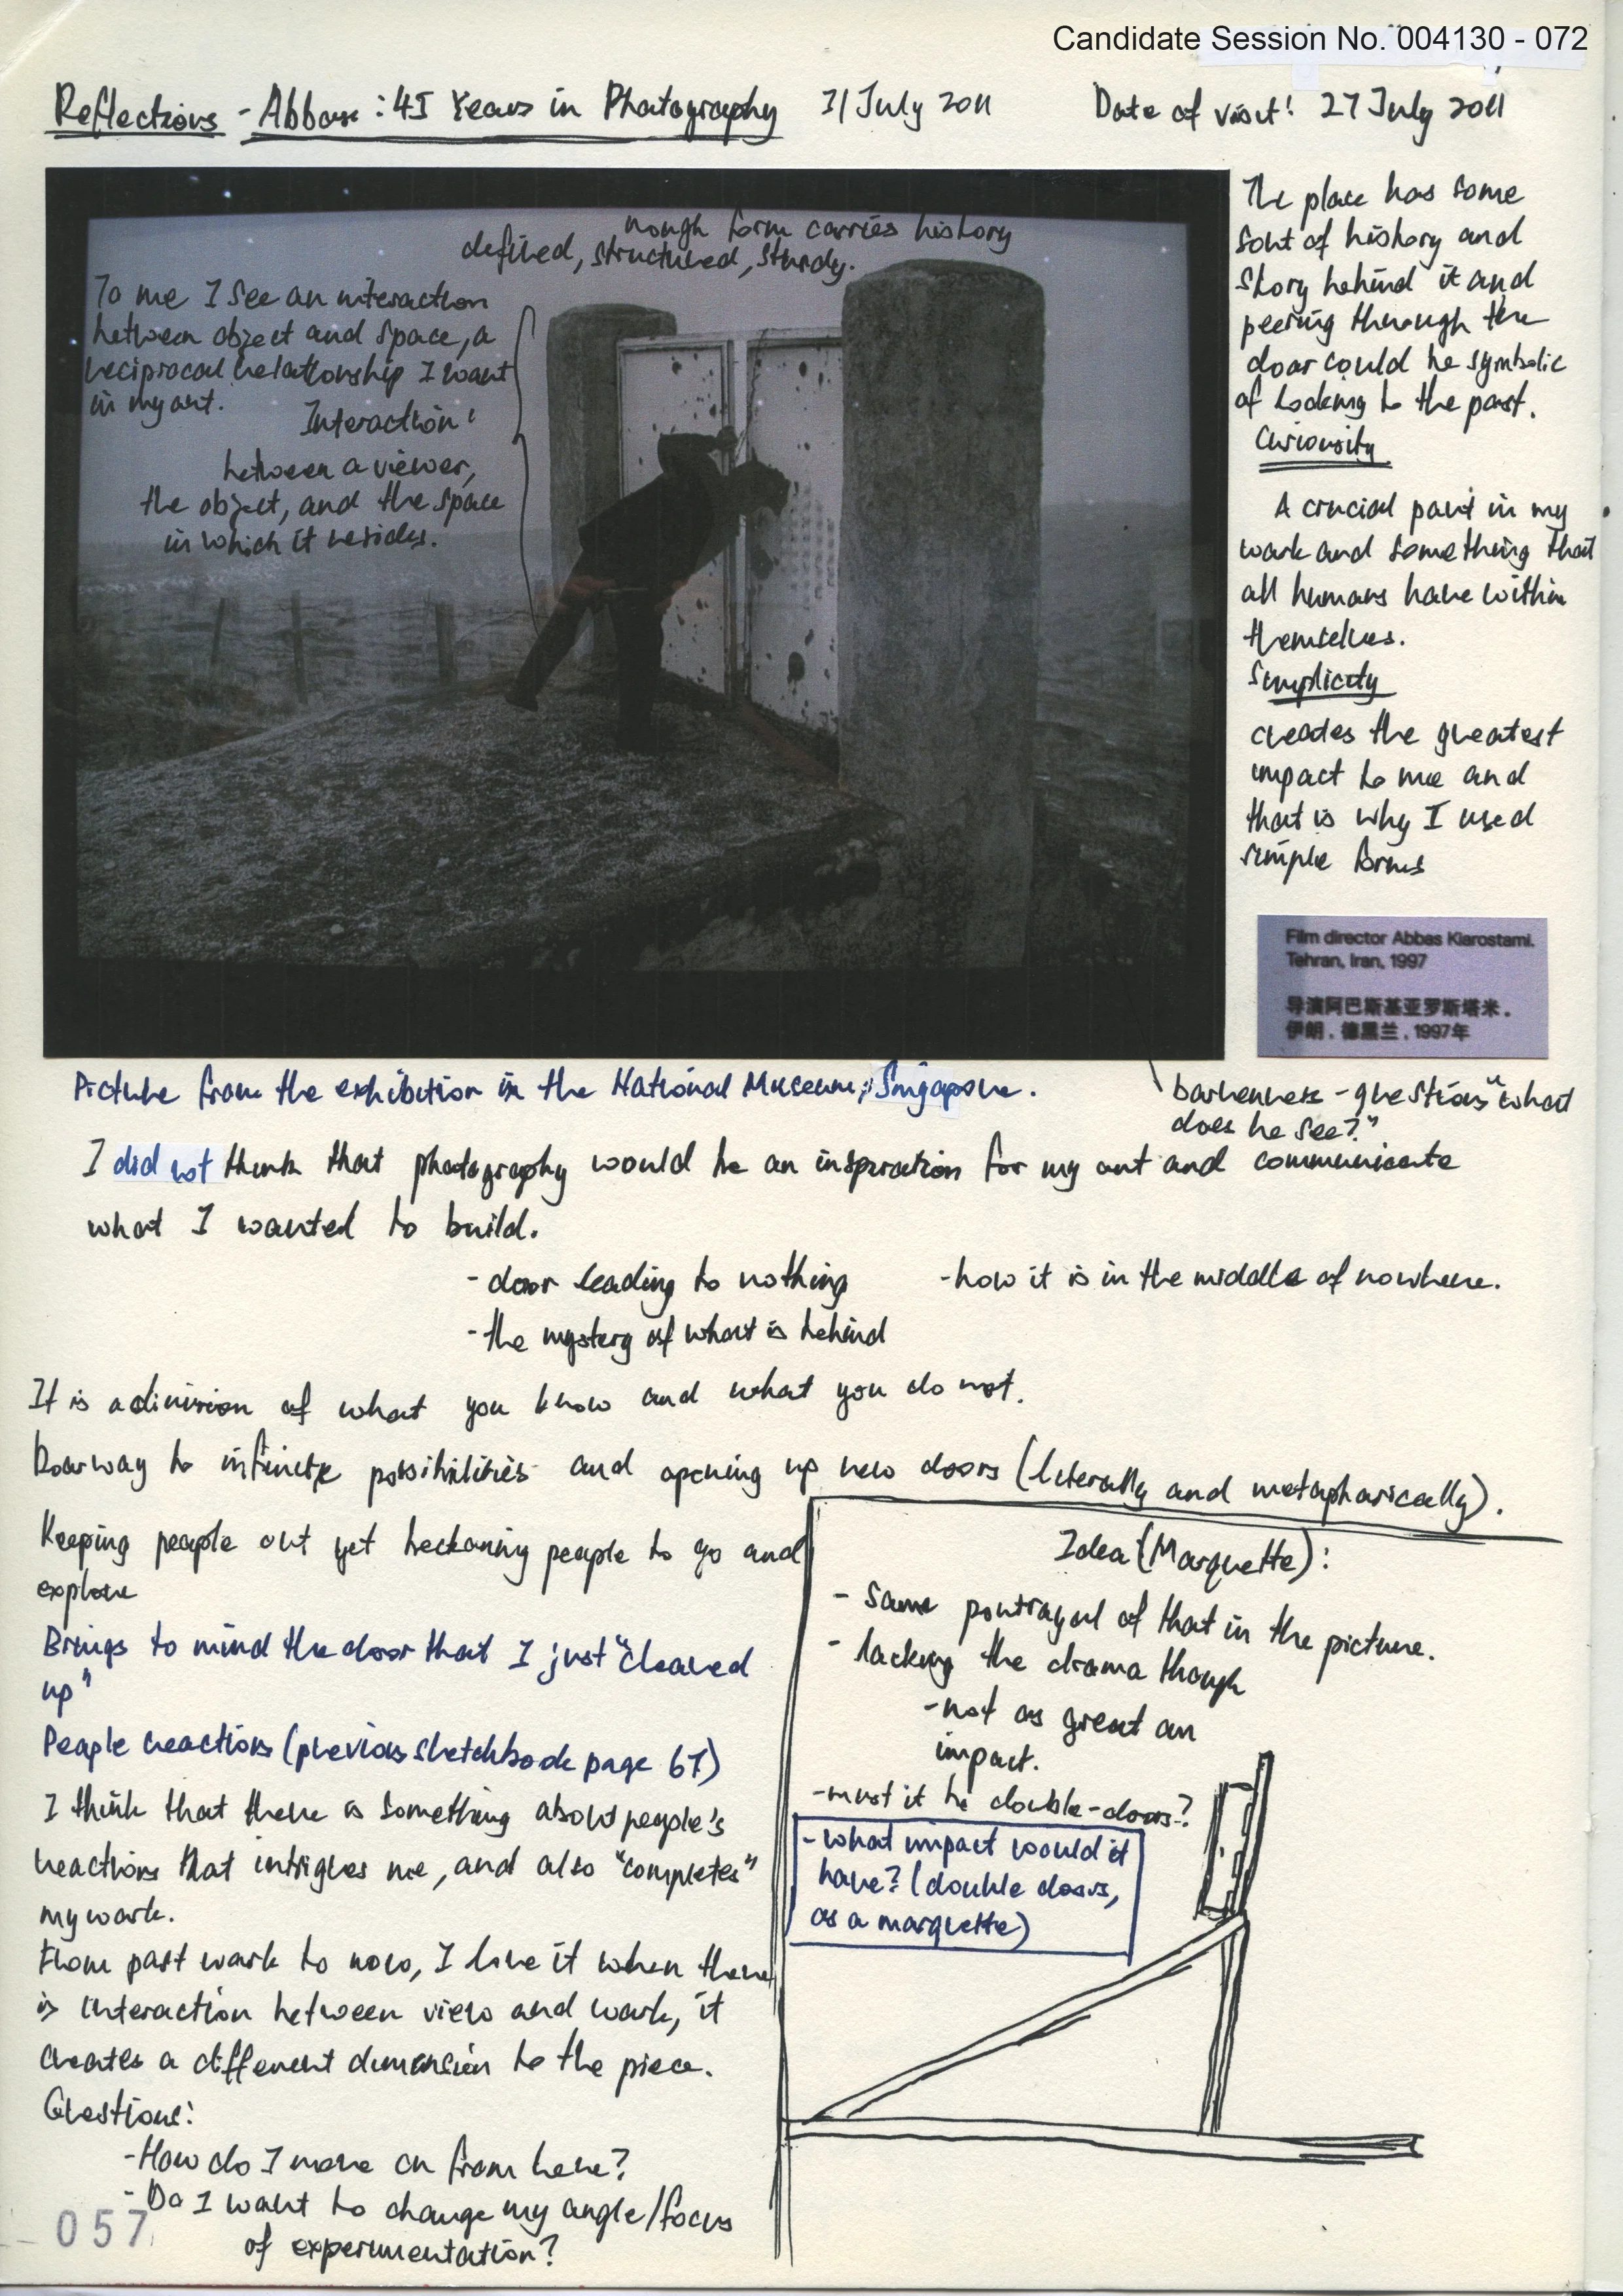 Candidate Session No. 004130 - 072
Reflections - Abbas: 45 Years in Photography 31 July 2011 Date of visit: 27 July 2011
rough form carries history
defined, structured, sturdy.
To me I see an interaction
between object and space, a
reciprocal relationship I want
in my art.
Interaction:
between a viewer,
the object, and the space
in which it resides.
The place has some
sort of history and
story behind it and
peering through the
door could be symbolic
of looking to the past.
Curiousity
A crucial part in my
work and something that
all humans have within
themselves.
Simplicity
creates the greatest
impact to me and
that is why I used
simple forms
Film director Abbas Kiarostami.
Tehran, Iran, 1997
导演阿巴斯基亚罗斯塔米.
伊朗. 德黑兰. 1997年
Picture from the exhibition in the National Museum, Singapore.
barrenness - questions "what
does he see?"
I did not think that photography would be an inspiration for my art and communicate
what I wanted to build.
- door leading to nothing - how it is in the middle of nowhere.
- the mystery of what is behind
It is a division of what you know and what you do not.
Doorway to infinite possibilities and opening up new doors (literally and metaphorically).
Keeping people out yet beckoning people to go and
explore
Brings to mind the door that I just "cleaned
up"
People reactions (previous sketchbook page 67)
I think that there is something about people's
reactions that intrigues me, and also "completes"
my work.
From past work to now, I love it when there
is interaction between view and work, it
creates a different dimension to the piece.
Questions:
- How do I move on from here?
- Do I want to change my angle/focus
of experimentation?
057
Idea (Marquette):
- same portrayal of that in the picture.
- lacking the drama though
- not as great an
impact.
- must it be double-doors?
- what impact would it
have? (double doors,
as a marquette)